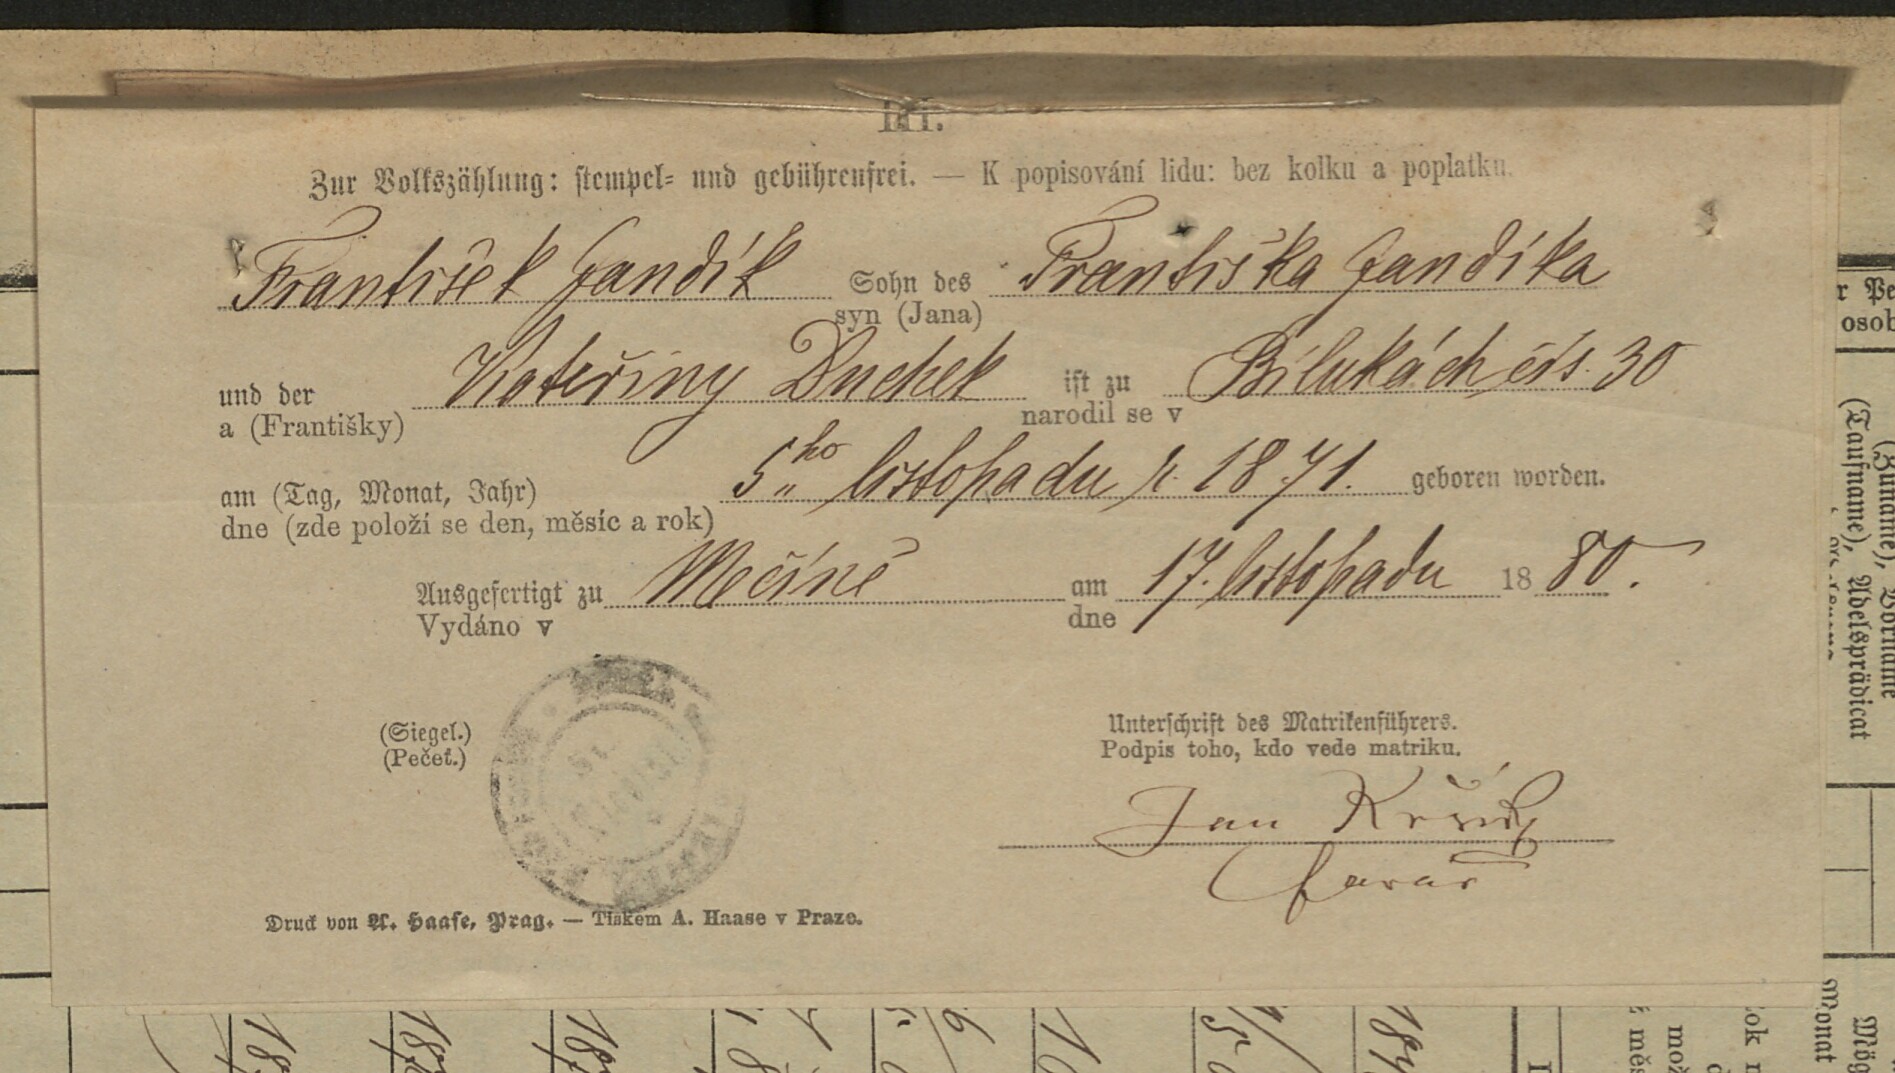 III.
Zur Volkszählung: stempel= und gebührenfrei. — K popisování lidu: bez kolku a poplatku.
František Jandík Sohn des Františka Jandíka
syn (Jana)
und der Kateřiny Duchek ist zu Bílukách čís. 30
a (Františky) narodil se v
am (Tag, Monat, Jahr) 5ho listopadu r. 1871. geboren worden.
dne (zde položí se den, měsíc a rok)
Ausgefertigt zu Mečíně am 17. listopadu 1880.
Vydáno v dne
(Siegel.) Unterschrift des Matrikenführers.
(Pečeť.) Podpis toho, kdo vede matriku.
Jan
farář
Druck von A. Haase, Prag. — Tiskem A. Haase v Praze.
r Pe
osob
(Zuname), Vorname
(Taufname), Adelsprädicat
Monat
18
18
18